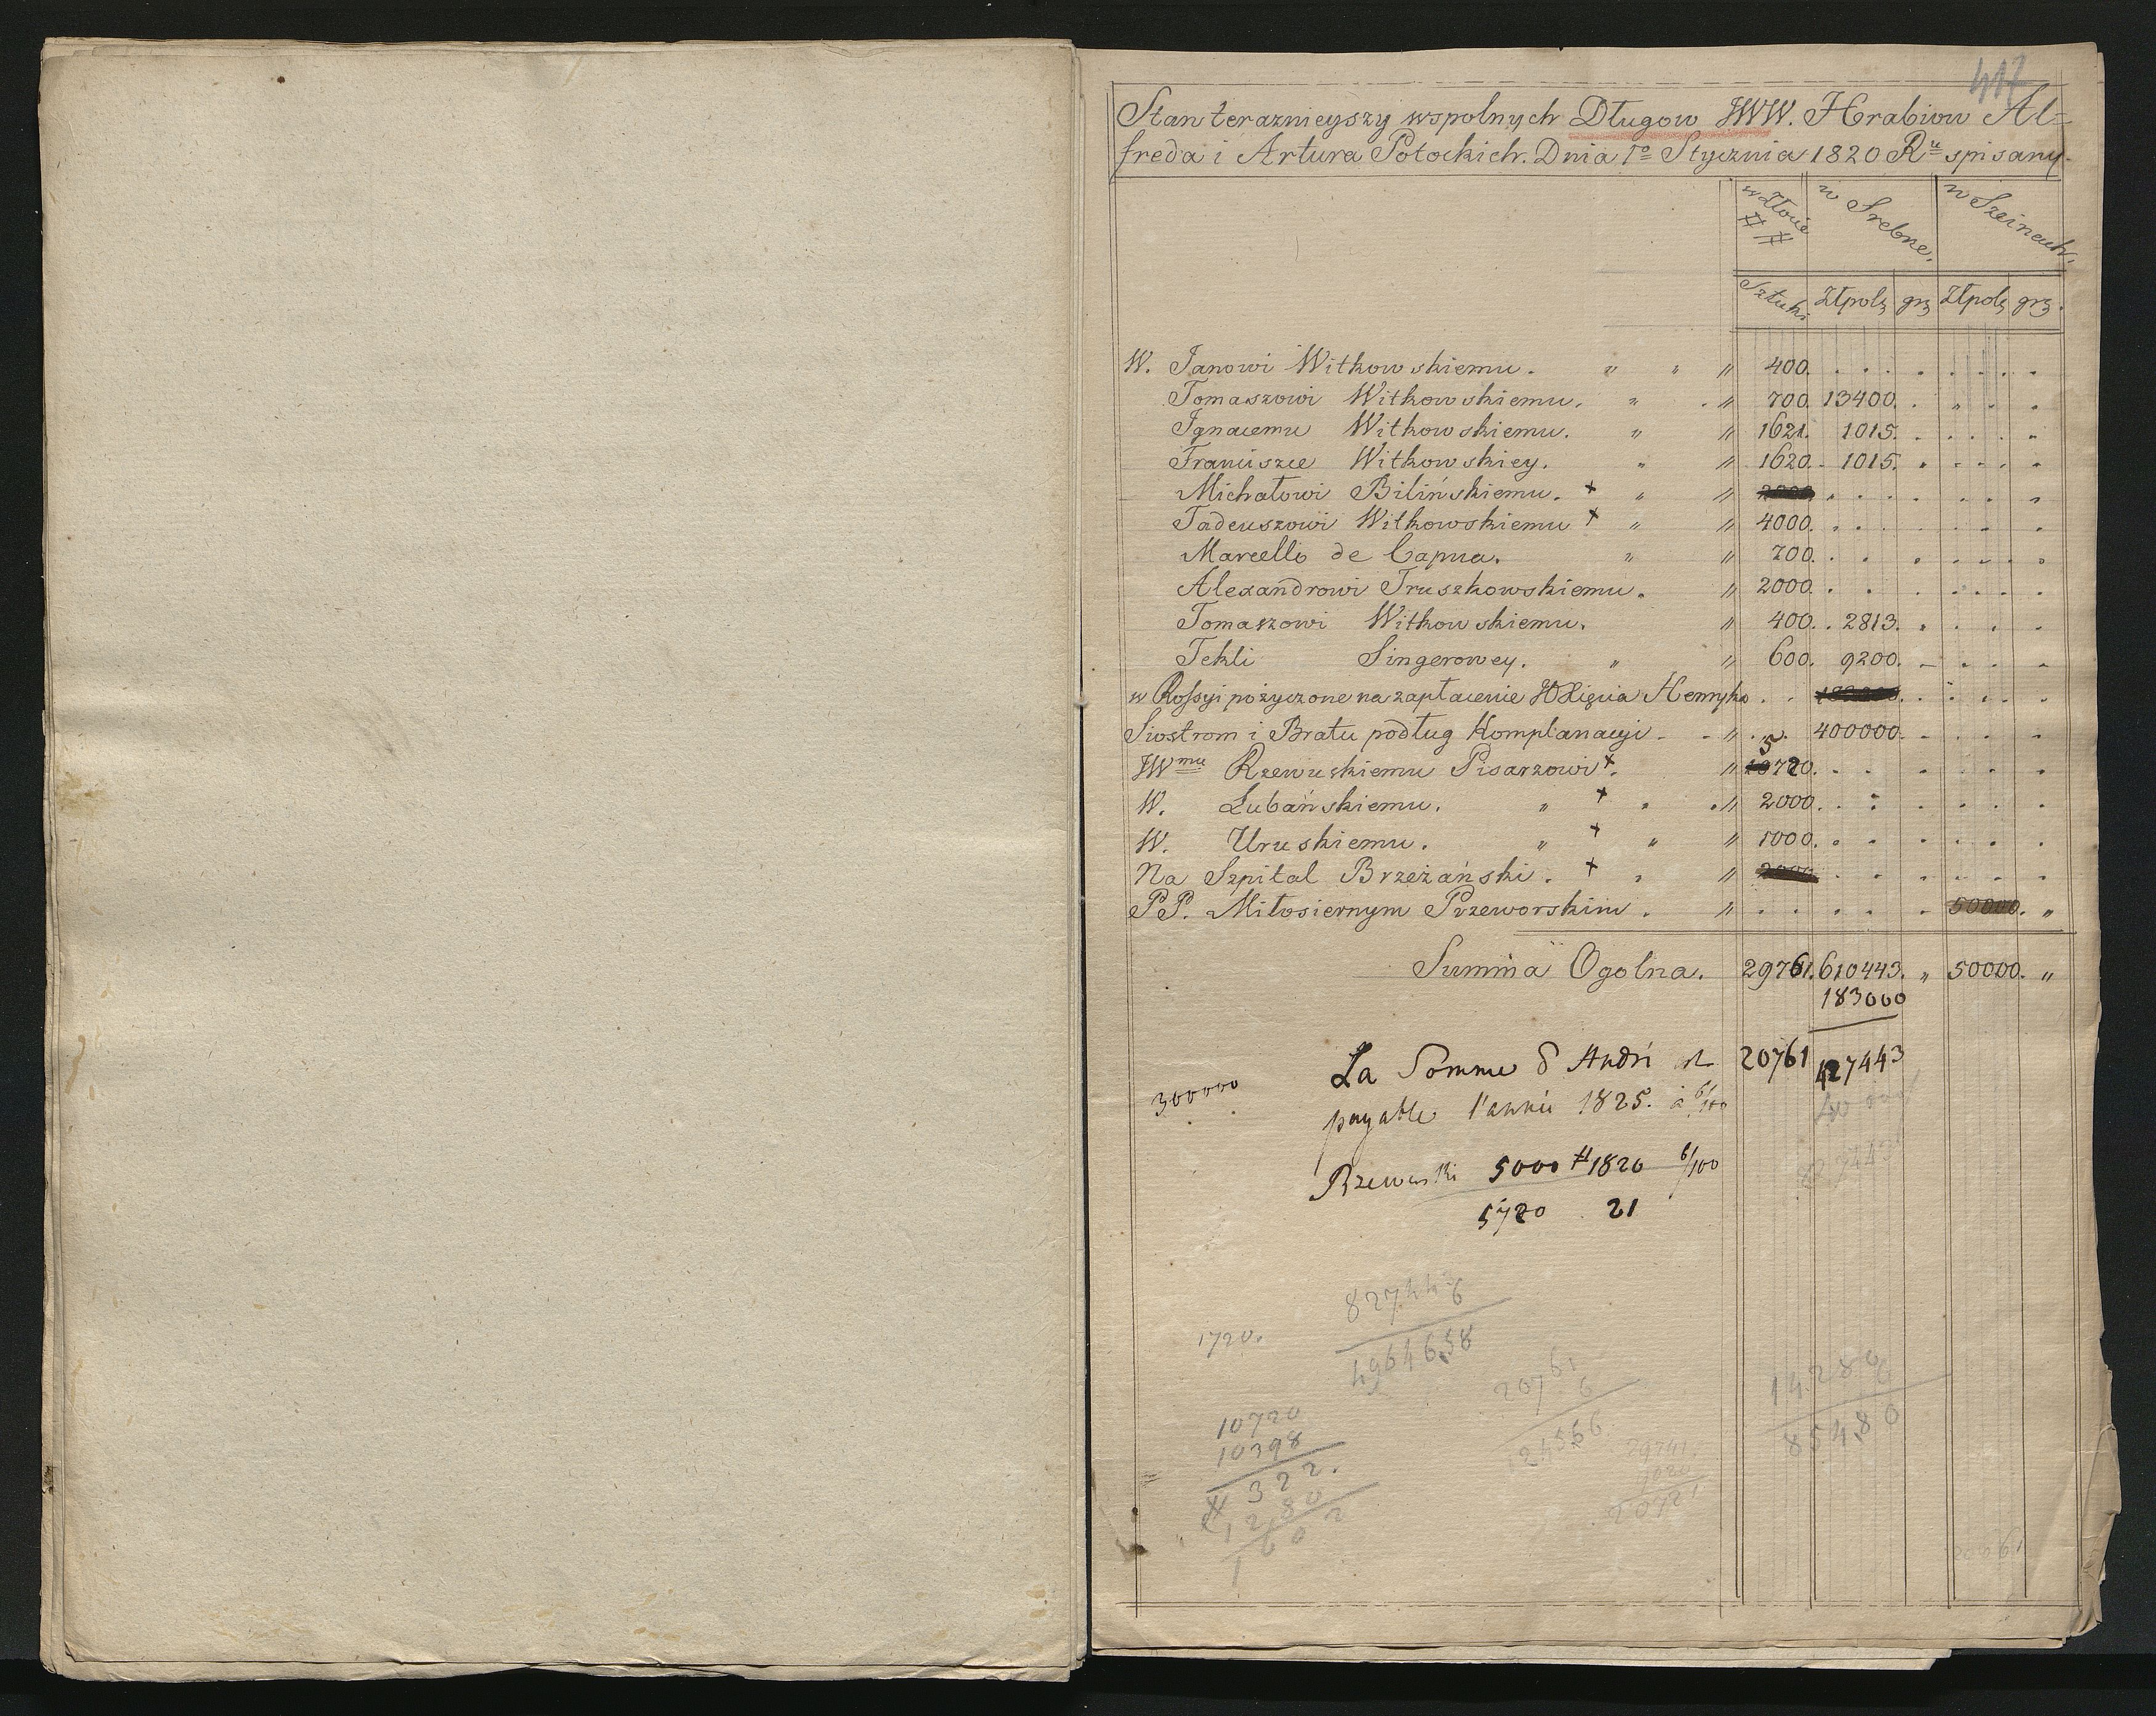 417
Stan teraznieyszy wspolnych Długow JWW. Hrabiow Al=
freda i Artura Potockich. Dnia 1o Stycznia 1820 Ru spisany.
w Złocie ## w Srebrne. w Szeinach.
Sztuki Złpols grz Złpols grz
W. Janowi Witkowskiemu. " " " 400.
Tomaszowi Witkowskiemu. " " 700. 13400.
Ignacemu Witkowskiemu. " " 1621. 1015.
Franciszce Witkowskiey. " " 1620. 1015.
Michałowi Bilińskiemu. + " " 2000
Tadeuszowi Witkowskiemu + " " 4000.
Marcello de Capua. " " 700.
Alexandrowi Truszkowskiemu. " 2000.
Tomaszowi Witkowskiemu. " 400. 2813.
Tekli Singerowey. " " 600. 9200.
w Rossyi pożyczone na zapłacenie JOXięcia Henryka 183000.
Siostrom i Bratu podług Komplanacyi " 400000.
JWmu Rzewuskiemu Pisarzowi +. " 5720.
W. Lubańskiemu. " + " 2000.
W. Uruskiemu. " + " " 1000.
Na Szpital Brzeżański. + " 2000
PP. Miłosiernym Przeworskim. " 50000. "
Summa Ogolna. 29761. 610443. " 50000. "
183000
La Somme d'André est 20761 427443
payable l'année 1825. à 6/100
300000
Rzewuski 5000 # 1820 6/100
5720 21
827443
6
4964658
1720.
20761
6
124566
14280
6
85480
10720
10398
# 322.
1280
1602